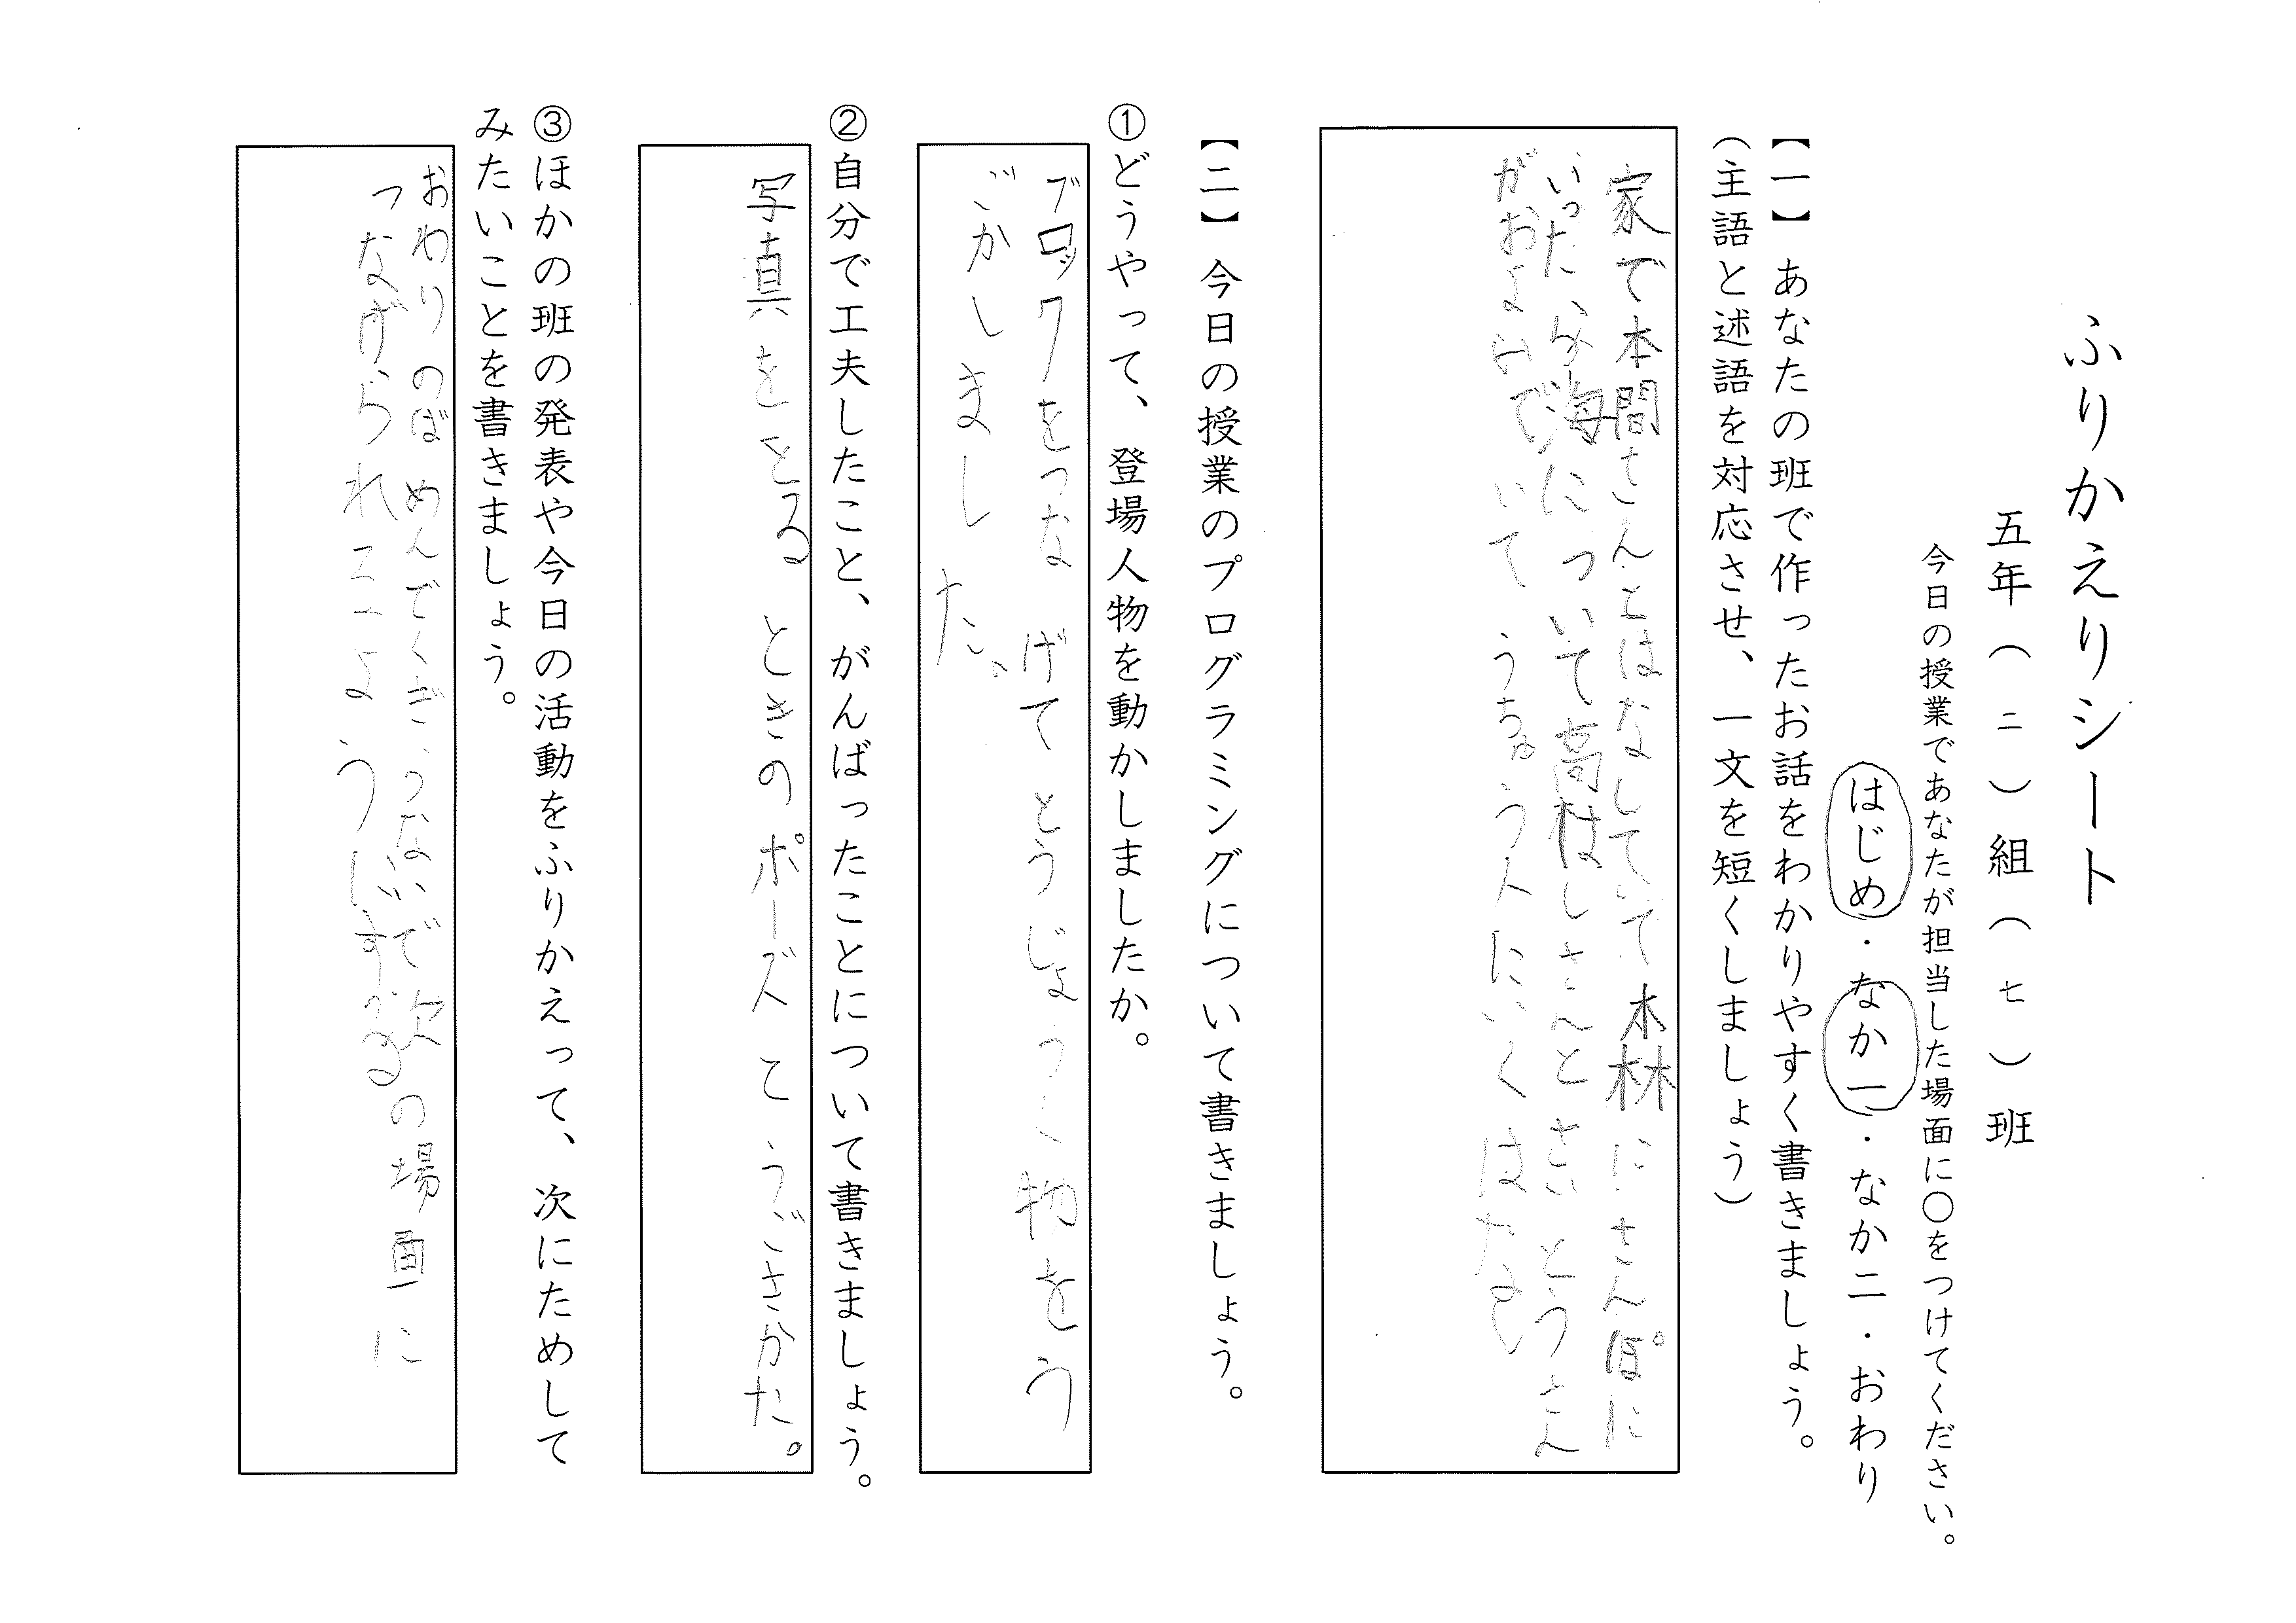 ふりかえりシート
五年（二）組（七）班
今日の授業であなたが担当した場面に〇をつけてください。
はじめ・なか一・なか二・おわり
【一】あなたの班で作ったお話をわかりやすく書きましょう。
（主語と述語を対応させ、一文を短くしましょう）
家で本間さんとはなしていて森にさんぽに
いったら海について高はしさんとさいとうさん
がおよいでいてうちゅう人にいくはたを
【二】今日の授業のプログラミングについて書きましょう。
①どうやって、登場人物を動かしましたか。
ブロックをつなげてとうじょうじん物をう
ごかしました。
②自分で工夫したこと、がんばったことについて書きましょう。
写真をとるときのポーズとうごきかた。
③ほかの班の発表や今日の活動をふりかえって、次にためして
みたいことを書きましょう。
おわりのばめんでくぎらないで次の場面に
つなげられるようにする